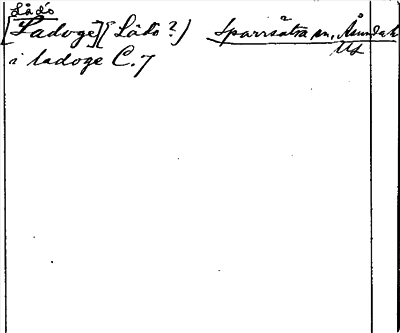 Lådö
[Ladoge] (Lådö ?) Sparrsätra sn, Åsunda h
Us
i ladoge C.7